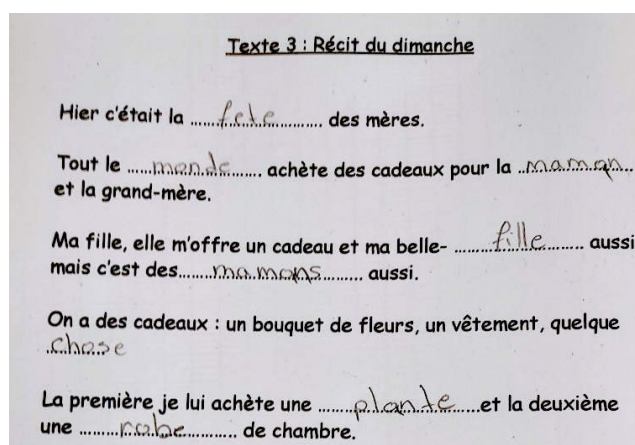 Texte 3 : Récit du dimanche
Hier c'était la ......fete...... des mères.
Tout le ......monde...... achète des cadeaux pour la ..maman..
et la grand-mère.
Ma fille, elle m'offre un cadeau et ma belle- ......fille...... aussi
mais c'est des......mamans...... aussi.
On a des cadeaux : un bouquet de fleurs, un vêtement, quelque
..chose
La première je lui achète une ......plante......et la deuxième
une ......robe...... de chambre.